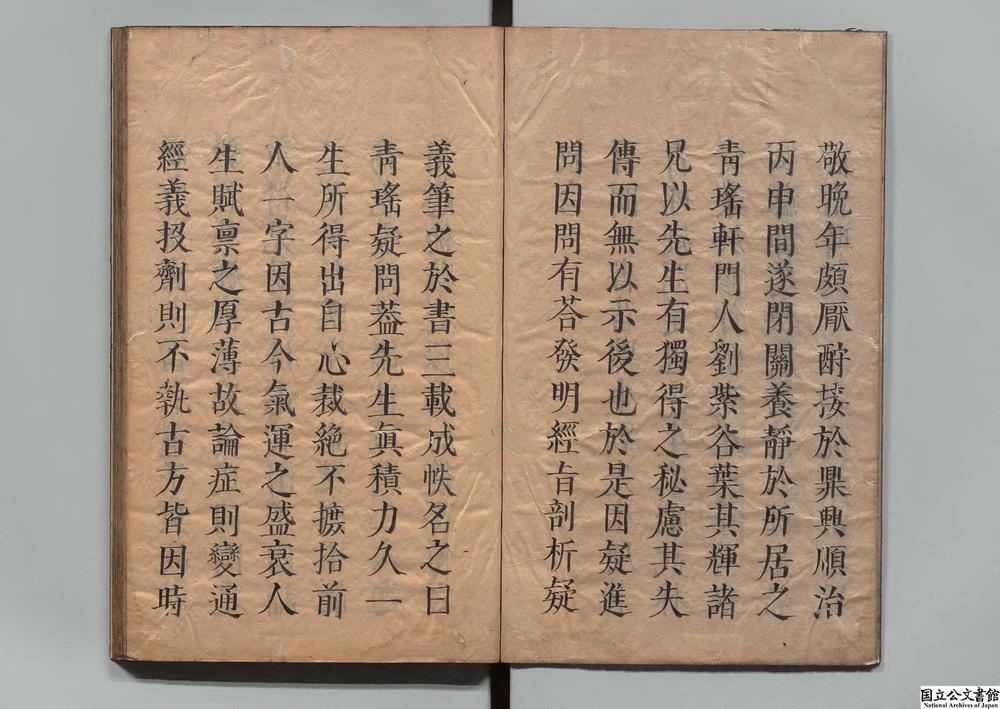 敬晚年頗厭酧接於鼎興順治
丙申間遂閉關養靜於所居之
青瑤軒門人劉紫谷葉其輝諸
兄以先生有獨得之秘慮其失
傳而無以示後也於是因疑進
問因問有荅發明經旨剖析疑
義筆之於書三載成帙名之曰
青瑤疑問葢先生眞積力久一
生所得出自心裁絕不摭拾前
人一字因古今氣運之盛衰人
生賦禀之厚薄故論症則變通
經義投劑則不執古方皆因時
国立公文書館
National Archives of Japan